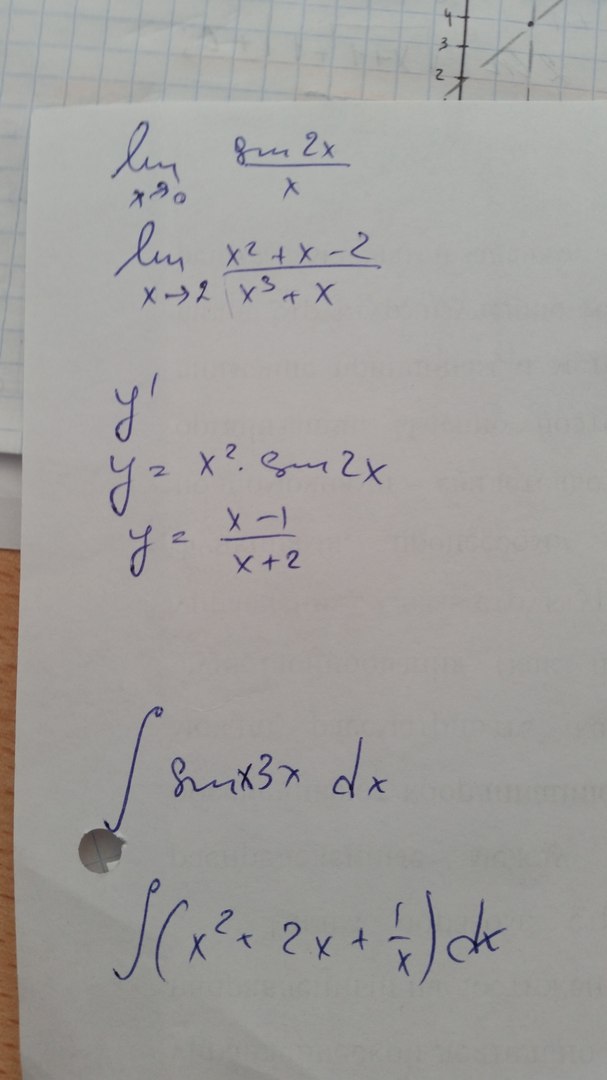 4
3
2
lim sin 2x / x
x→0
lim x² + x - 2 / x³ + x
x→2
y'
y = x² · sin 2x
y = x - 1 / x + 2
∫ sinx3x dx
∫(x² + 2x + 1/x) dx